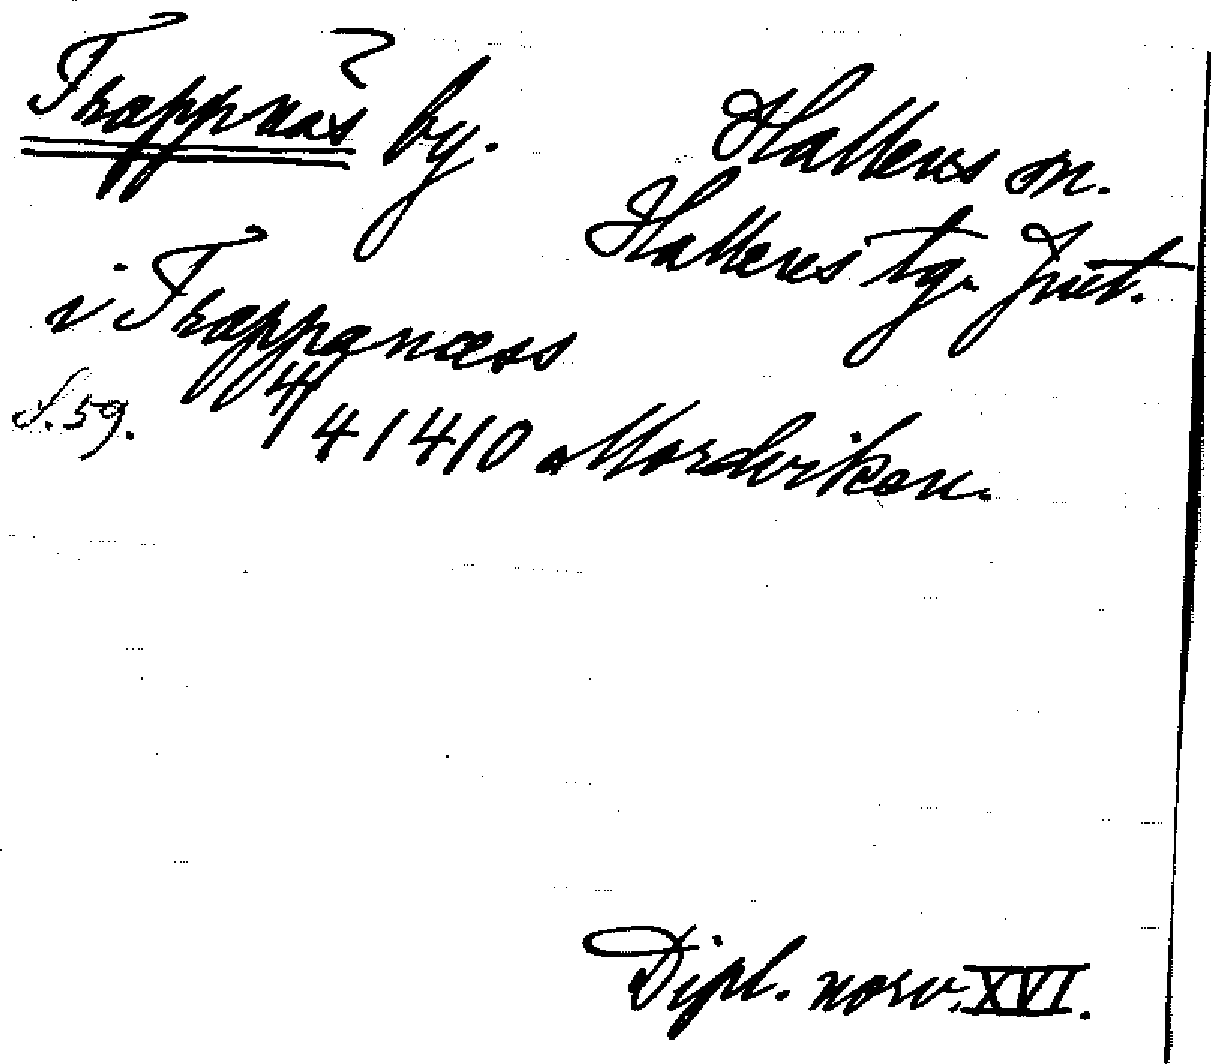 Trappnäs by.
Hallens sn.
Hallens tg. Jmt.
i Trappanæss
S. 59.
4/4 1410 Mordviken.
Dipl. norv. XVI.